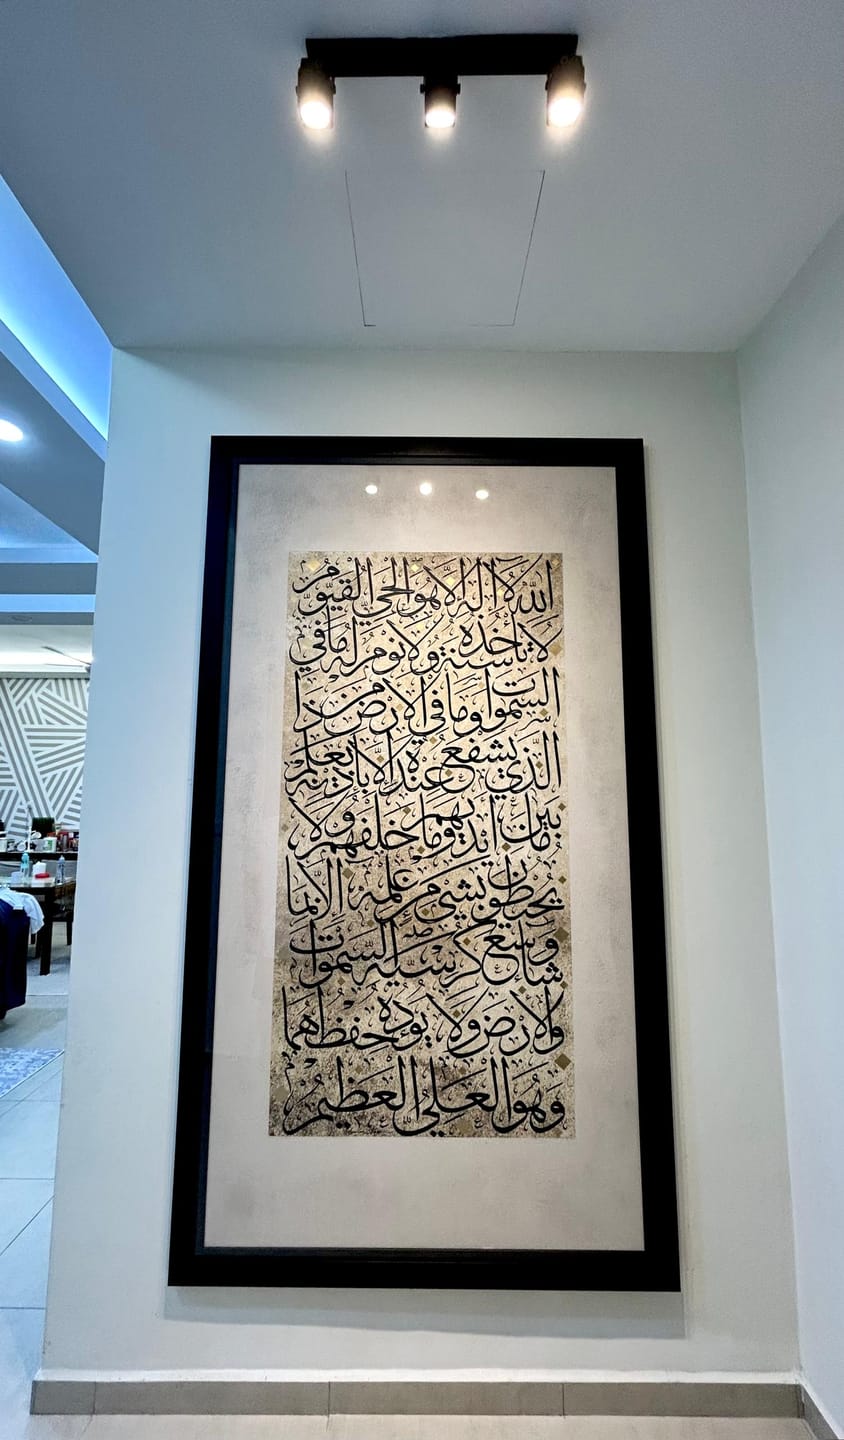 الله لا إله إلا هو الحي القيوم
لا تأخذه سنة ولا نوم له ما في
السموات وما في الأرض من ذا
الذي يشفع عنده إلا بإذنه يعلم
ما بين أيديهم وما خلفهم ولا
يحيطون بشيء من علمه إلا بما
شاء وسع كرسيه السموات
والأرض ولا يؤده حفظهما
وهو العلي العظيم